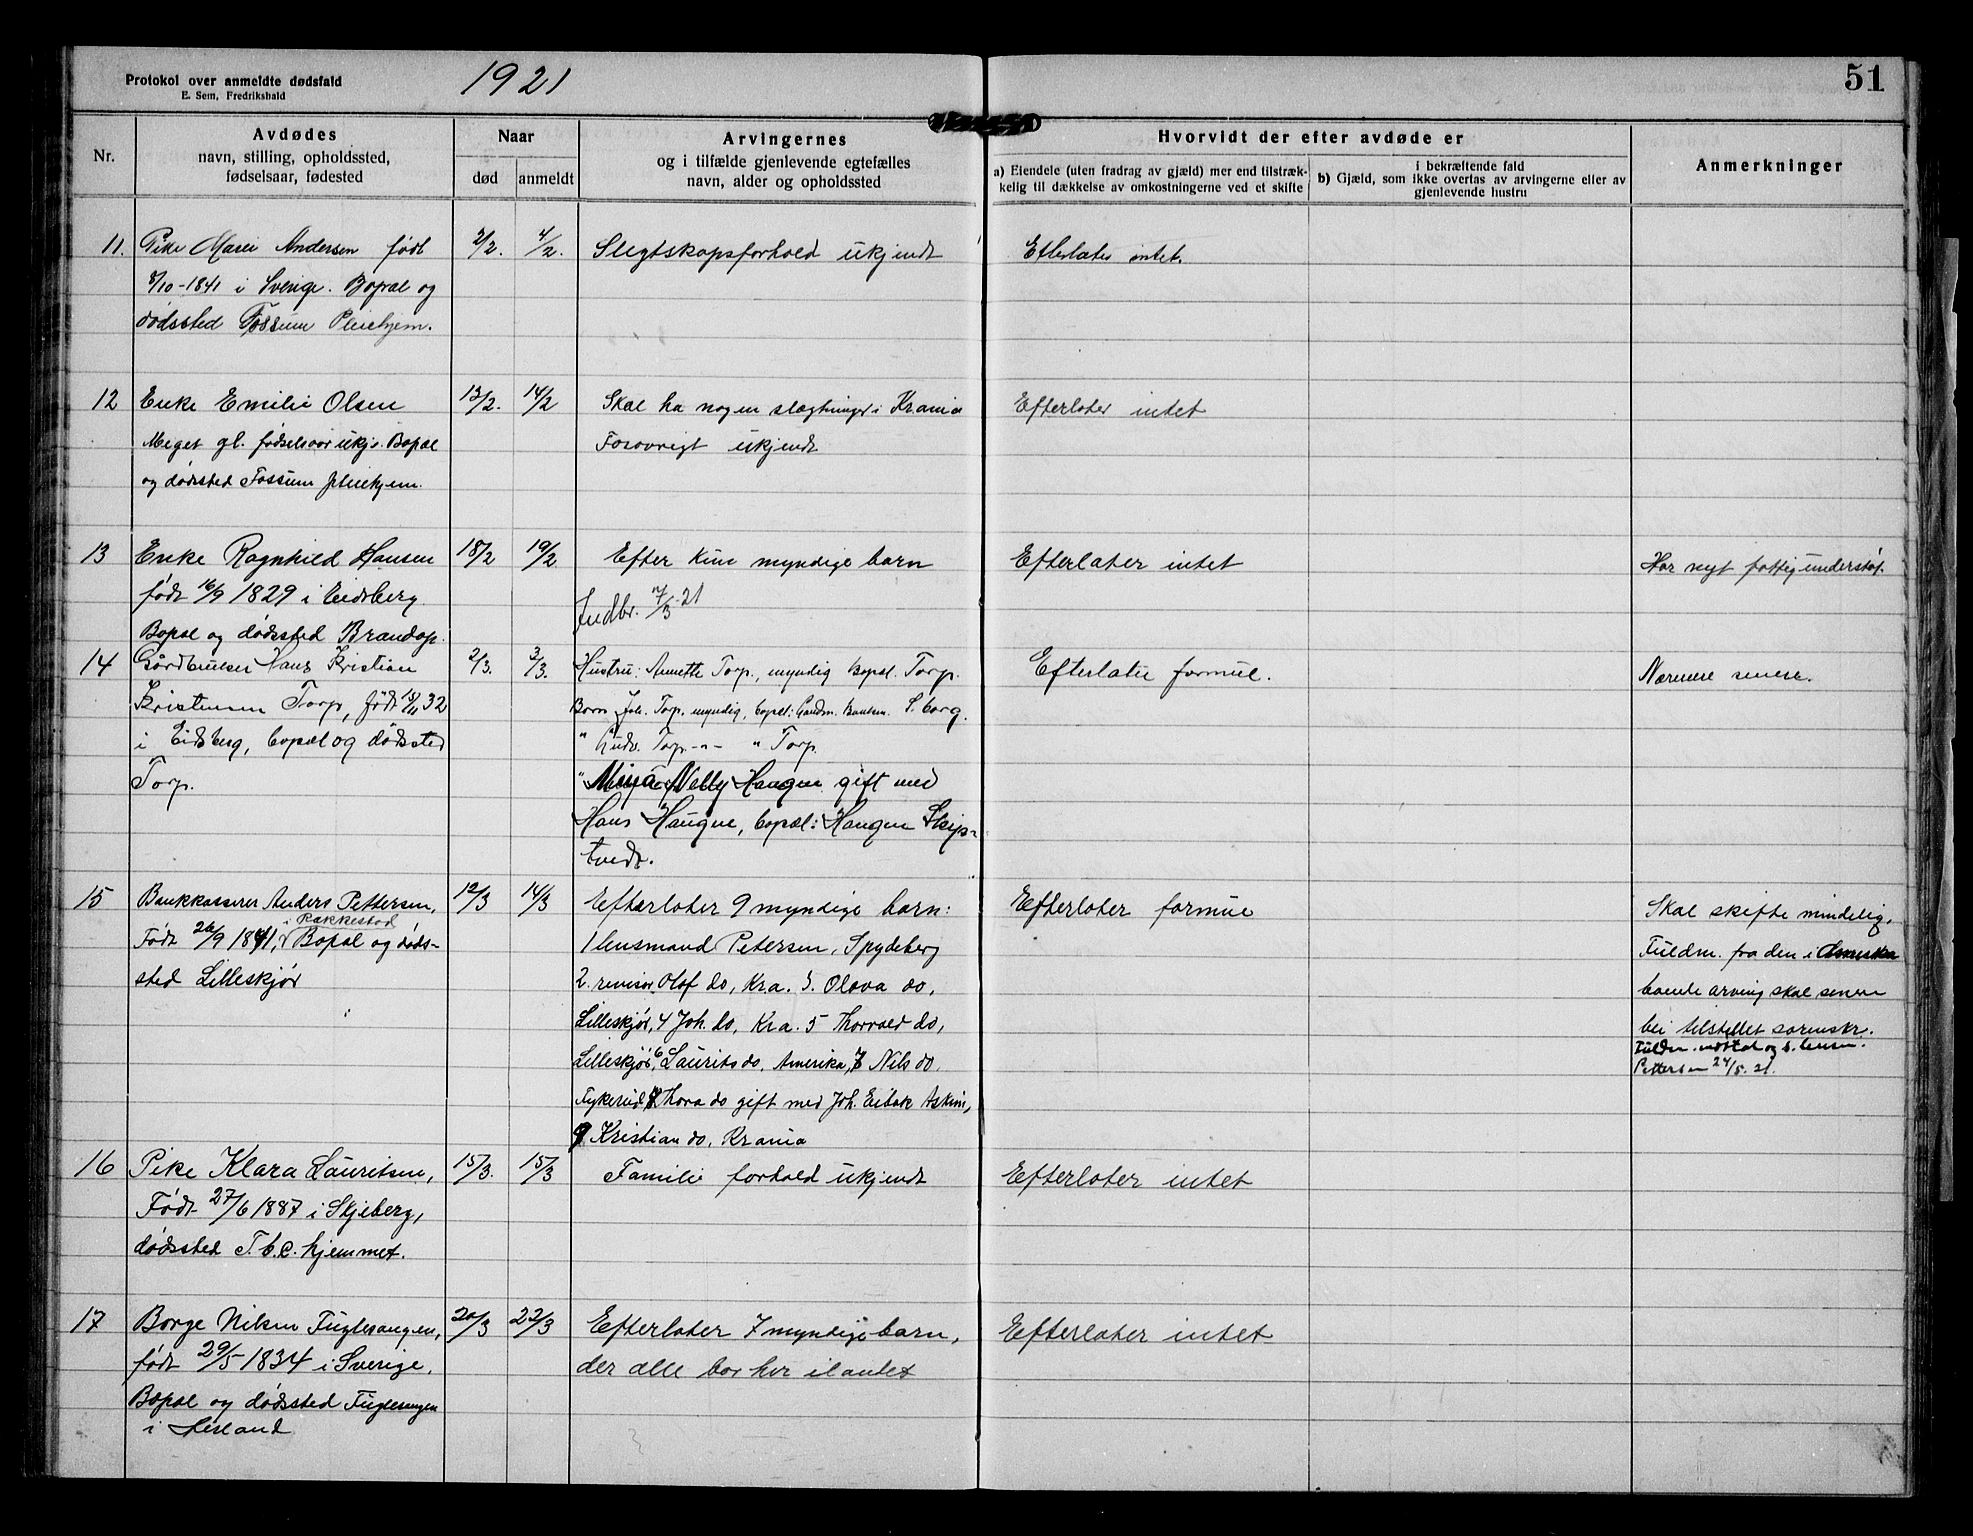 Protokol over anmeldte dødsfald
E. Sem, Fredrikshald
1921
51
Nr.
Avdødes
navn, stilling, opholdssted,
fødselsaar, fødested
Naar
død
anmeldt
Arvingernes
og i tilfælde gjenlevende egtefælles
navn, alder og opholdssted
Hvorvidt der efter avdøde er
a) Eiendele (uten fradrag av gjæld) mer end tilstræk-
kelig til dækkelse av omkostningerne ved et skifte
i bekræftende fald
b) Gjæld, som ikke overtas av arvingerne eller av
gjenlevende hustru
Anmerkninger
11. Pike Marie Andersen født
8/10-1841 i Sverige. Bopæl og
dødssted Fossum Pleiehjem.
2/2. 4/2.
Slegtskapsforhold ukjendt
Efterlater intet.
12 Enke Emilie Olsen
Meget gl. fødselsaar ukj. Bopæl
og dødssted Fossum pleiehjem.
13/2. 14/2
Skal ha nogen slægtninger i Krania
Forøvrigt ukjendt
Efterlater intet
13 Enke Ragnhild Hansen
født 16/9 1829 i Eidsberg
Bopæl og dødssted Brandop.
18/2 19/2
Efter kun myndige barn
Indbr. 7/3.21
Efterlater intet
Har nyt fattigunderstøt.
14 Gårdbruker Hans Kristian
Kristensen Torp, født 18/11 32
i Eidsberg, bopæl og dødssted
Torp.
2/3. 3/3.
Hustru: Annette Torp, myndig bopæl. Torp.
Barn Joh. Torp, myndig, bopæl: S.borg.
" Gudv. Torp -"- " Torp.
" Nelly Haugen gift med
Hans Haugen, bopæl: Haugen Skip-
tvedt.
Efterlater formue.
Nærmere senere.
15 Bankkasserer Anders Pettersen,
i Rakkestad
Født 26/9 1841, Bopæl og døds-
sted Lilleskjør
12/3 14/3
Efterlater 9 myndige barn:
1 lensmand Petersen, Spydeberg
2. revisor Olof do, Kra. 3. Olava do,
Lilleskjør, 4 Joh. do, Kra. 5 Thorvald do,
Lilleskjør, 6 Laurits do, Amerika, 7 Nils do.
Fykerud 8 Thora do gift med Joh. Eitak Askim,
9 Kristian do, Krania
Efterlater formue
Skal skifte mindelig.
Fuldm. fra den i Amerika
boende arving skal senere
bli tilstillet sorenskr.
Fuldm.
Pettersen 24/5.21.
16 Pike Klara Lauritsen,
Født 27/6 1887 i Skjeberg,
dødssted T.b.c. hjemmet.
15/3. 15/3
Familieforhold ukjendt
Efterlater intet
17 Borge Nilsen Fuglesangen,
født 29/5 1834 i Sverige.
Bopæl og dødssted Fuglesangen
i
20/3 22/3
Efterlater 7 myndige barn,
der alle bor her i landet
Efterlater intet